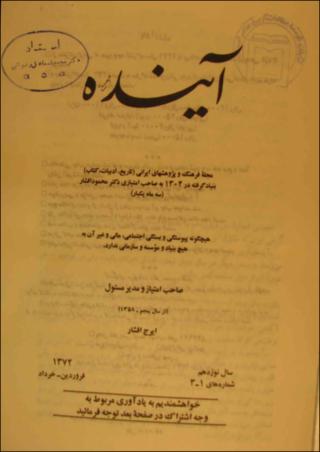 آینده
مجلهٔ فرهنگ و پژوهشهای ایرانی (تاریخ، ادبیات، کتاب)
بنیاد گرفته در ۱۳۰۴ به صاحب امتیازی دکتر محمود افشار
(سه ماه یکبار)
هیچگونه پیوستگی و بستگی اجتماعی، مالی و غیر آن به
هیچ بنیاد و مؤسسه و سازمانی ندارد.
صاحب امتیاز و مدیر مسئول
(از سال پنجم - ۱۳۵۸)
ایرج افشار
سال نوزدهم
شماره‌های ۱-۳
۱۳۷۲
فروردین - خرداد
خواهشمندیم به یادآوری مربوط به
وجه اشتراک در صفحهٔ بعد توجه فرمائید